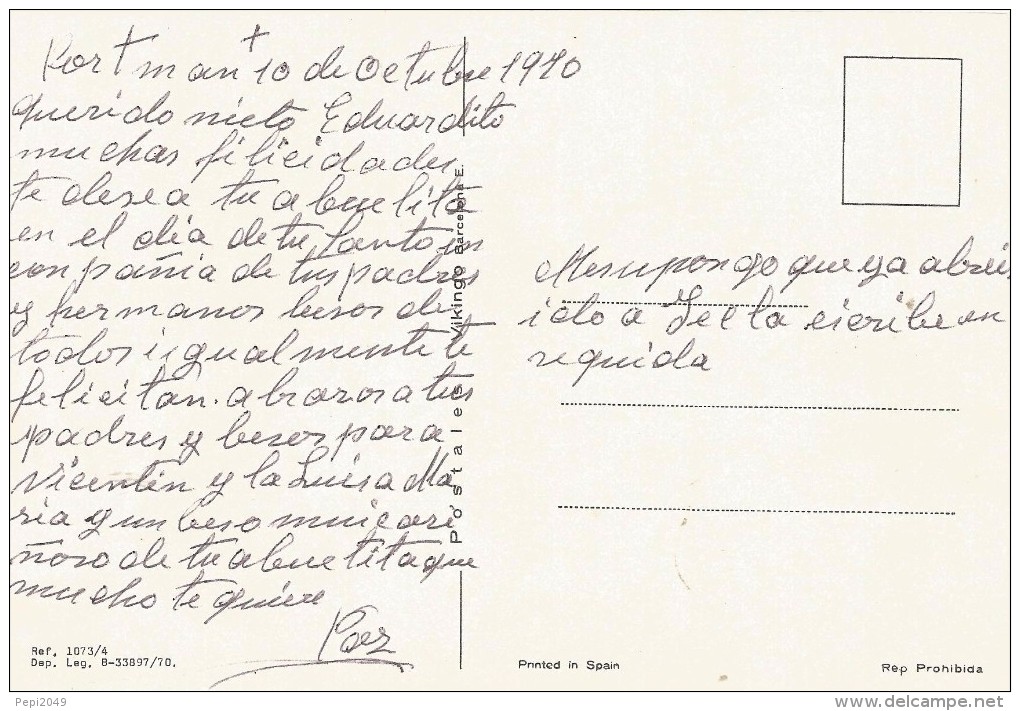 +
Portman 10 de Octubre 1970
querido nieto Eduardito
muchas filicidades
te desea tu abuelita
en el dia de tu Santo en
conpañia de tus padres
y hermanos besos de
todos i igualmente te
felicitan. abrazos a tus
padres y besos para
Vicentin y la Luisa Ma
ria y un beso mui cari
ñoso de tu abuelita que
mucho te quiere
Paz
Ref. 1073/4
Dep. Leg. B-33897/70.
Postales Vikingo Barcelona E.
Me supongo que ya abreis
ido a escribe en
seguida
Printed in Spain
Rep Prohibida
Pepi2049
www.delcampe.net